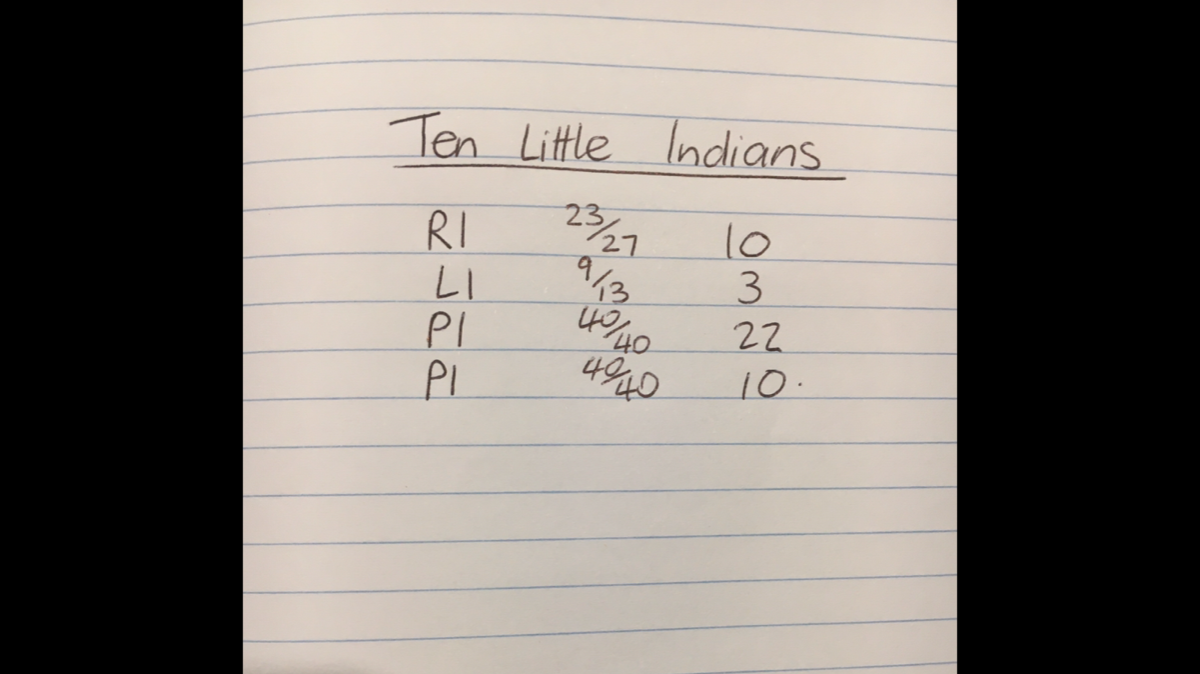 Ten Little Indians
R1 23/27 10
L1 9/13 3
P1 40/40 22
P1 40/40 10.